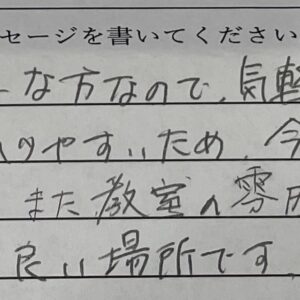 セージを書いてください
な方なので、気軽
りやすいため、今
また教室の雰
良い場所です